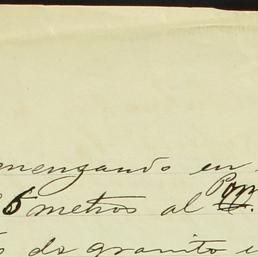 menzando en
6 metros al Pom
de granito